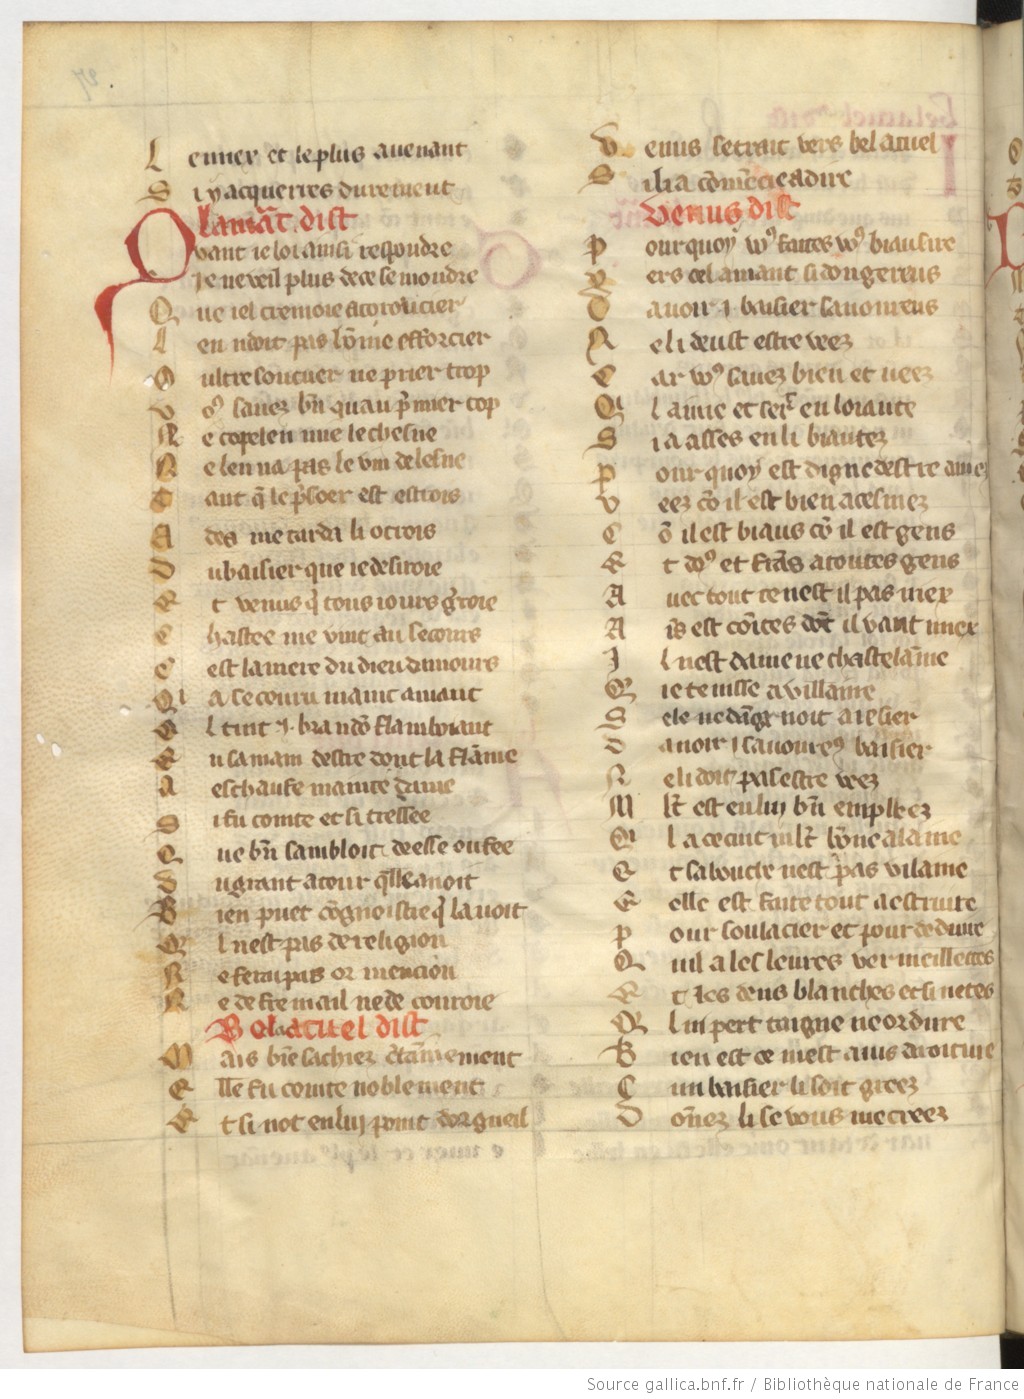 L e miex et le plus avenant
S i y acquerres durement
Lamāt dist
Q vant ie loi ainsi respondre
Je ne veil plus de ce semondre
Q ue iel cremoie a coroucier
L en ndoit pas lōme efforcier
O ultre son cuer ne prier trop
V oꝰ savez bn̄ quau pͥmier cop
N e cope len mie le chesne
N e len na pas le vin de lesne
T ant q̄ le p̄soer est estrois
A des me tarda li otrois
D u baisier que ie desiroie
E t venus qͥ tous iours gͥroie
C hastee me vint au secours
C est la mere du dieu damours
Qi a secouru maint amant
E l tint .i. brandō flamboiant
E n sa main destre dont la flāme
A eschaufe mainte dame
S i fu cointe et si tressee
Q ue bn̄ sambloit deesse ou fee
D u grant atour q̄lle avoit
B ien puet cōgnoistre qͥ la voit
Q l nest pas de religion
N e ferai pas or mencion
N e de fremail ne de coroie
Belacuel dist
M ais bīe sachiez ctāinement
E lle fu cointe noblement
E t si not en luy point dorgueil
V enus se trait vers bel acuel
S i li a cōmēcie a dire
Venus dist
P our quoy vꝰ faites vꝰ biau sire
V ers cel amant si dongereus
D avoir .i. baisier savoureus
N e li deust estre veez
C ar vꝰ savez bien et veez
Qi l aime et sert en loiaute
S i a asses en li biautez
P our quoy est digne destre amez
V eez cō il est bien acesmez
C ō il est biaus cō il est gens
E t doꝰ et frās a toutes gens
A vec tout ce nest il pas viex
A īs est ioīces dōt il vaut miex
I l nest dame ne chastelaīne
Q ie tenisse a villaīne
S ele ne dāgͥnoit a aisier
D avoir .i. savoureꝰ baisier
N e li doit pas estre veez
M lt̄ est en luy bn̄ emploiez
Qi l a ce cuit mlt̄ bōne alaine
E t sa bouche nest pas vilaine
E elle est faite tout a estruire
P our soulacier et pour deduire
Q uil a les leures vermeillettes
E t les dens blanches et si netes
Q l ni pert taigne ne ordure
B ien est ce mest avis droiture
C un baisier li soit greez
D ōnez li se vous me creez
Source gallica.bnf.fr / Bibliothèque nationale de France